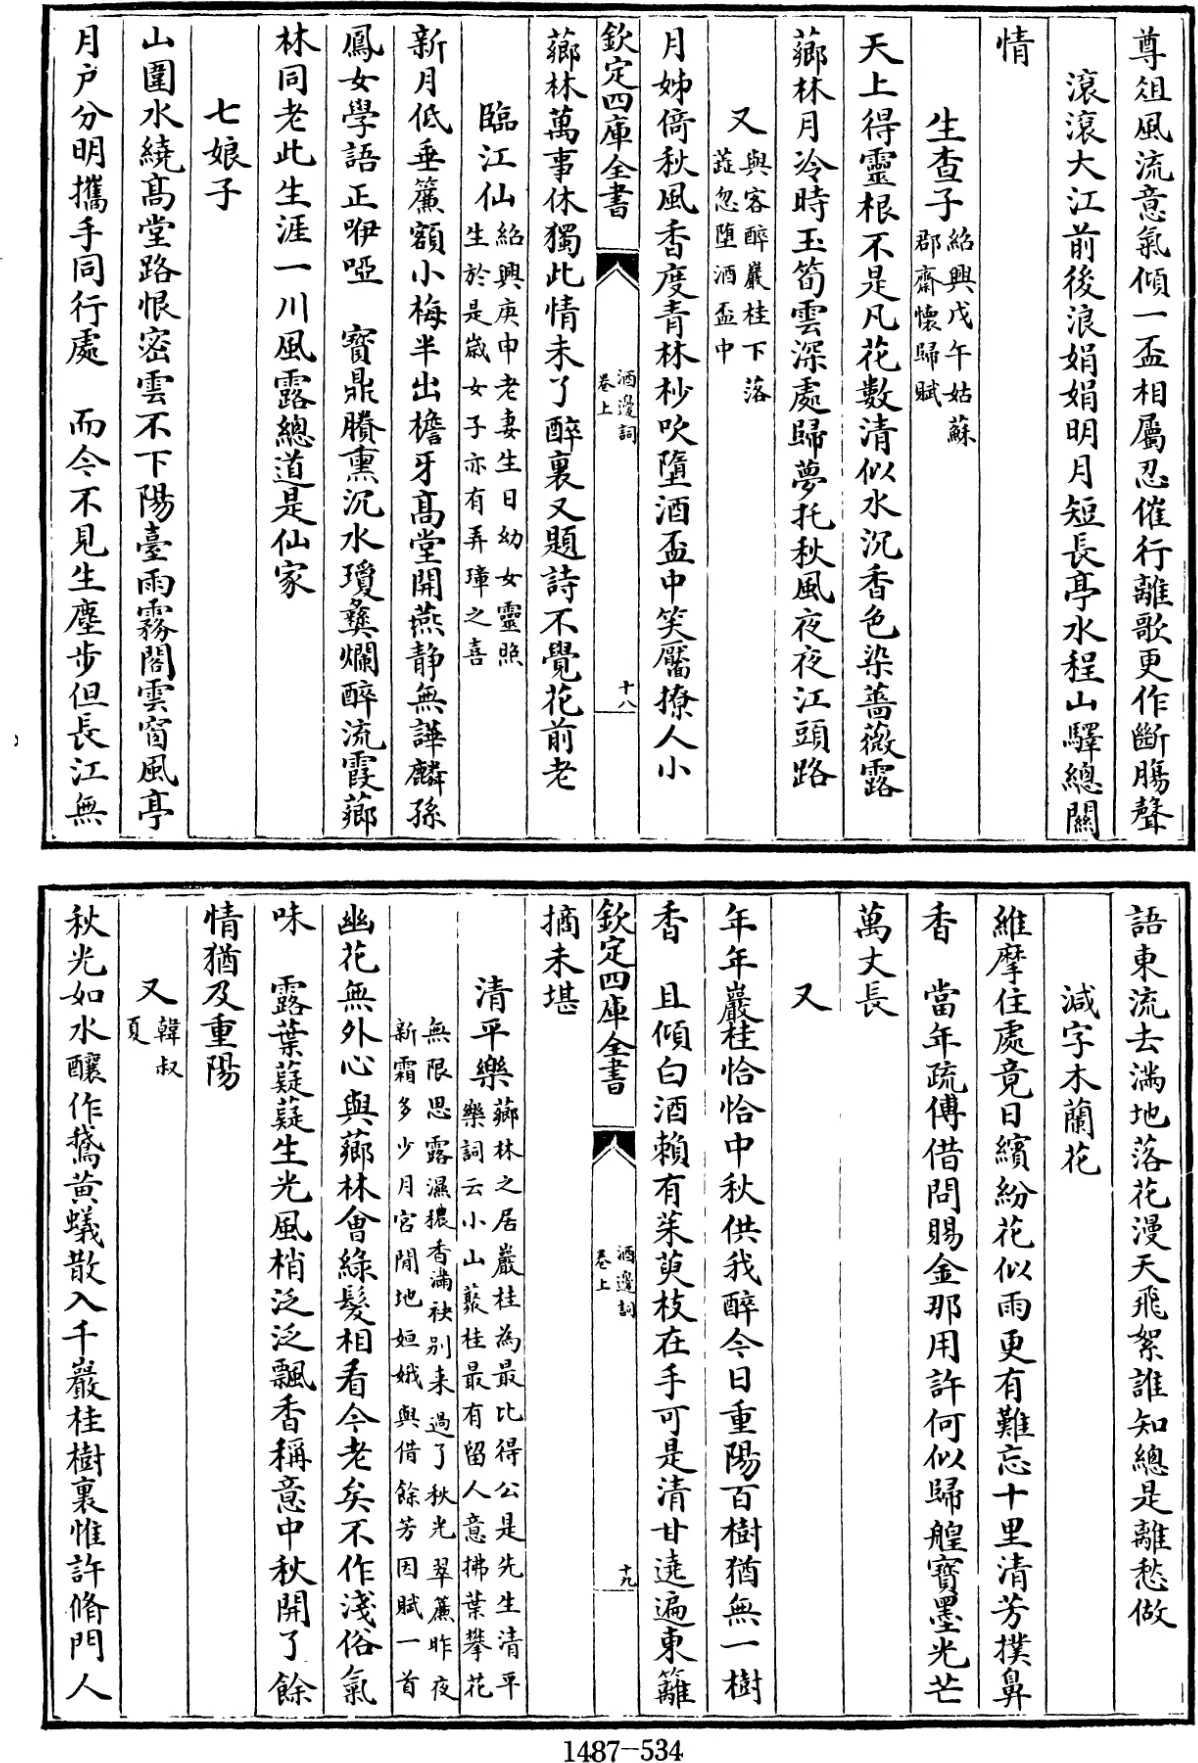 尊俎風流意氣傾一盃相屬忍催行離歌更作斷腸聲
滾滾大江前後浪娟娟明月短長亭水程山驛總關
情
生查子紹興戊午姑蘇
郡齋懷歸賦
天上得靈根不是凡花數清似水沉香色染薔薇露
薌林月冷時玉筍雲深處歸夢托秋風夜夜江頭路
又與客醉巖桂下落
蘂忽墮酒盃中
月姊倚秋風香度青林杪吹墮酒盃中笑靨撩人小
欽定四庫全書
酒邊詞
卷上
十八
薌林萬事休獨此情未了醉裏又題詩不覺花前老
臨江仙紹興庚申老妻生日幼女靈照
生於是歲女子亦有弄璋之喜
新月低垂簾額小梅半出檐牙高堂開燕静無譁麟孫
鳳女學語正咿啞　寶鼎賸熏沉水瓊彝爛醉流霞薌
林同老此生涯一川風露總道是仙家
七娘子
山圍水繞高堂路恨密雲不下陽臺雨霧閣雲窗風亭
月戶分明攜手同行處　而今不見生塵步但長江無
語東流去滿地落花漫天飛絮誰知總是離愁做
減字木蘭花
維摩住處竟日繽紛花似雨更有難忘十里清芳撲鼻
香　當年疏傅借問賜金那用許何似歸艎寶墨光芒
萬丈長
又
年年巖桂恰恰中秋供我醉今日重陽百樹猶無一樹
香　且傾白酒賴有茱萸枝在手可是清甘遶遍東籬
欽定四庫全書
酒邊詞
卷上
十九
摘未堪
清平樂薌林之居巖桂為最比得公是先生清平
樂詞云小山叢桂最有留人意拂葉攀花
無限思露濕穠香滿袂别来過了秋光翠簾昨夜
新霜多少月宫閒地姮娥與借餘芳因賦一首
幽花無外心與薌林會綠髮相看今老矣不作淺俗氣
味　露葉薿薿生光風梢泛泛飄香稱意中秋開了餘
情猶及重陽
又韓叔
夏
秋光如水釀作鵞黄蟻散入千巖桂樹裏惟許脩門人
1487—534